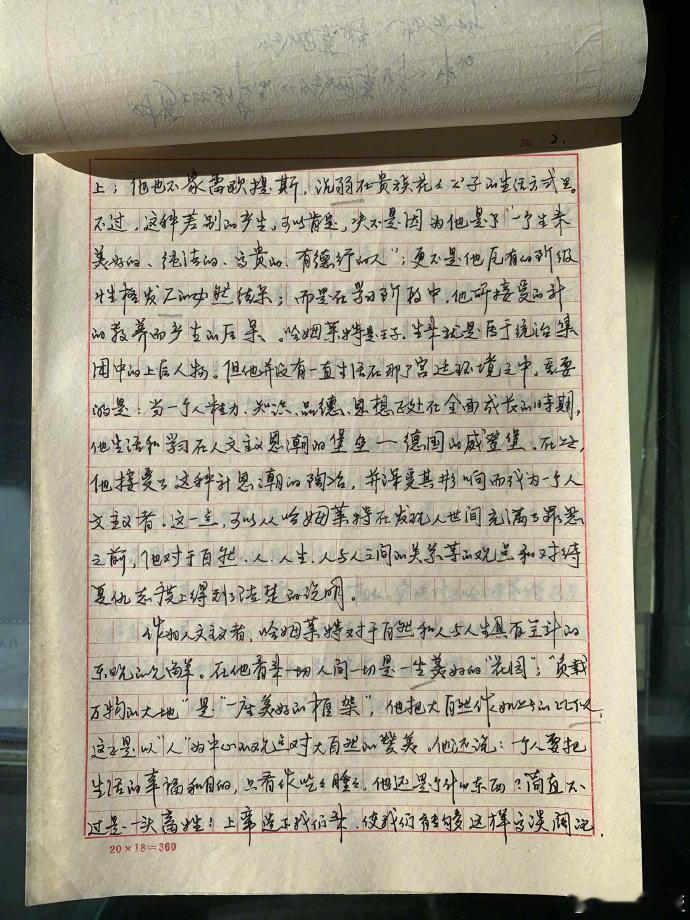 2.
上；他也不象雷欧提斯，沉溺在贵族花花公子的生活方式里。
不过，这种差别的产生，可以肯定，决不是因为他是了“一个生来
美好的、纯洁的、高贵的、有德行的人”；更不是他应有的阶级
性格发展的必然结果；而是在学习阶段中，他所接受的新
的教养而产生的后果。哈姆莱特是王子，生来就是属于统治集
团中的上层人物。但他并没有一直生活在那个宫廷环境之中。重要
的是：当一个人智力、知识、品德、思想正处在全面成长的时期，
他生活和学习在人文主义思潮的堡垒——德国的威登堡。在这，
他接受了这种新思潮的陶冶，并深受其影响而成为一个人
文主义者。这一点，可以从哈姆莱特在发现人世间充满了罪恶
之前，他对于自然、人、人生、人与人之间的关系等的观点和对待
复仇态度上得到了清楚的说明。
作为人文主义者，哈姆莱特对于自然和人与人生具有全新的
乐观的。在他看来一切人间一切是一生美好的“花园”；“负载
万物的大地”是“一座美好的框架”，他把大自然作如此的比拟，
这正是以“人”为中心的观点对大自然的赞美。他还说：一个人要把
生活的幸福和目的，只看作吃吃睡睡，他还是个什么东西？简直不
过是一头畜牲！上帝造下我们来，使我们能够这样高谈阔论，
20×18=360